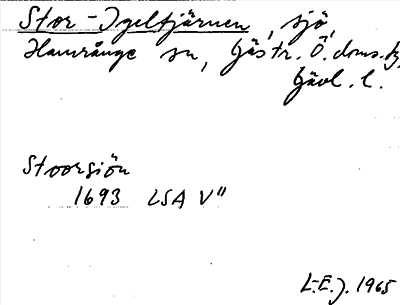 Stor-Igeltjärnen, sjö,
Hamrånge sn, Gästr. Ö. doms.,
Gävl. l.
Stoorsiön
1693 LSA V"
L-E.J. 1965